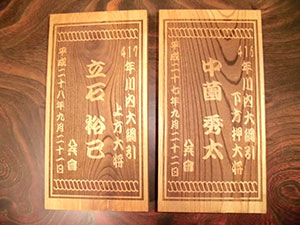 416年川内大綱引
下方押大将
中薗 秀太
平成二十七年九月二十二日
417年川内大綱引
上方大将
立石 裕己
平成二十八年九月二十二日